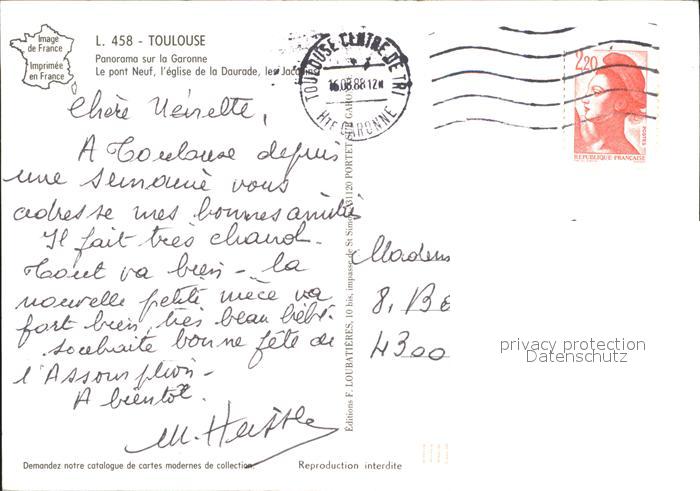 Image
de France
Imprimée
en France
L. 458 - TOULOUSE
Panorama sur la Garonne
Le pont Neuf, l'église de la Daurade, les
TOULOUSE CENTRE DE TRI
16.08.88 12H
HTE GARONNE
2,20
POSTES
REPUBLIQUE FRANÇAISE
Chère
A Toulouse depuis
une semaine vous
adresse mes bonnes amitiés
Il fait très chaud.
Tout va bien - la
nouvelle petite nièce va
fort bien, très beau bébé.
souhaite bonne fête de
l'Assomption -
A bientôt.
Madem
8, BE
4300
privacy protection
Datenschutz
Editions F. LOUBATIÈRES, 10 bis, impasse de St Simon 31120 PORTET SUR GARONNE
Demandez notre catalogue de cartes modernes de collection
Reproduction interdite